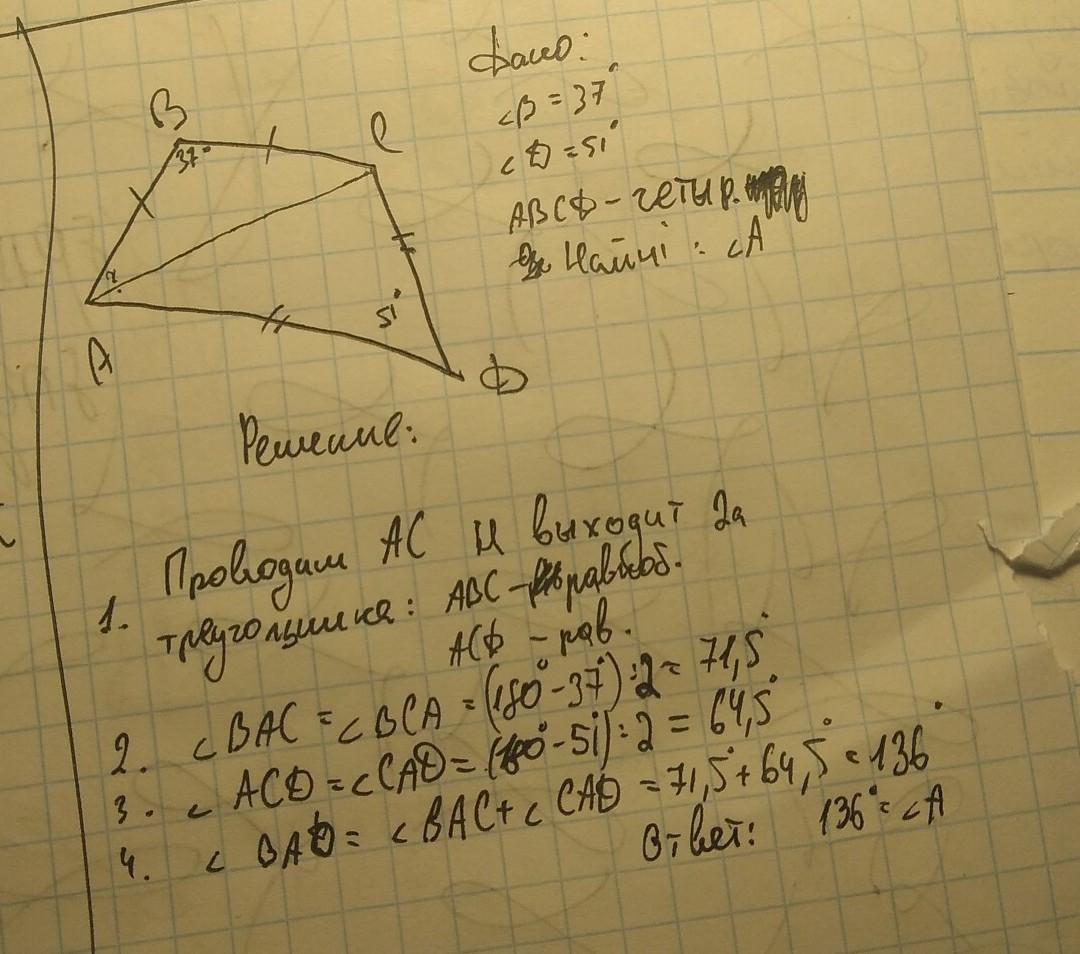 B
37°
C
x
A
51°
D
Дано:
∠B = 37°
∠D = 51°
ABCD - четыр.
Найти: ∠A
Решение:
1. Проводим AC и выходит 2а
треугольника: ABC - равбоб.
ACD - рав.
2. ∠BAC = ∠BCA = (180° - 37°) : 2 = 71,5°
3. ∠ACD = ∠CAD = (180° - 51) : 2 = 64,5°
4. ∠BAD = ∠BAC + ∠CAD = 71,5° + 64,5° = 136°
Ответ: 136° = ∠A